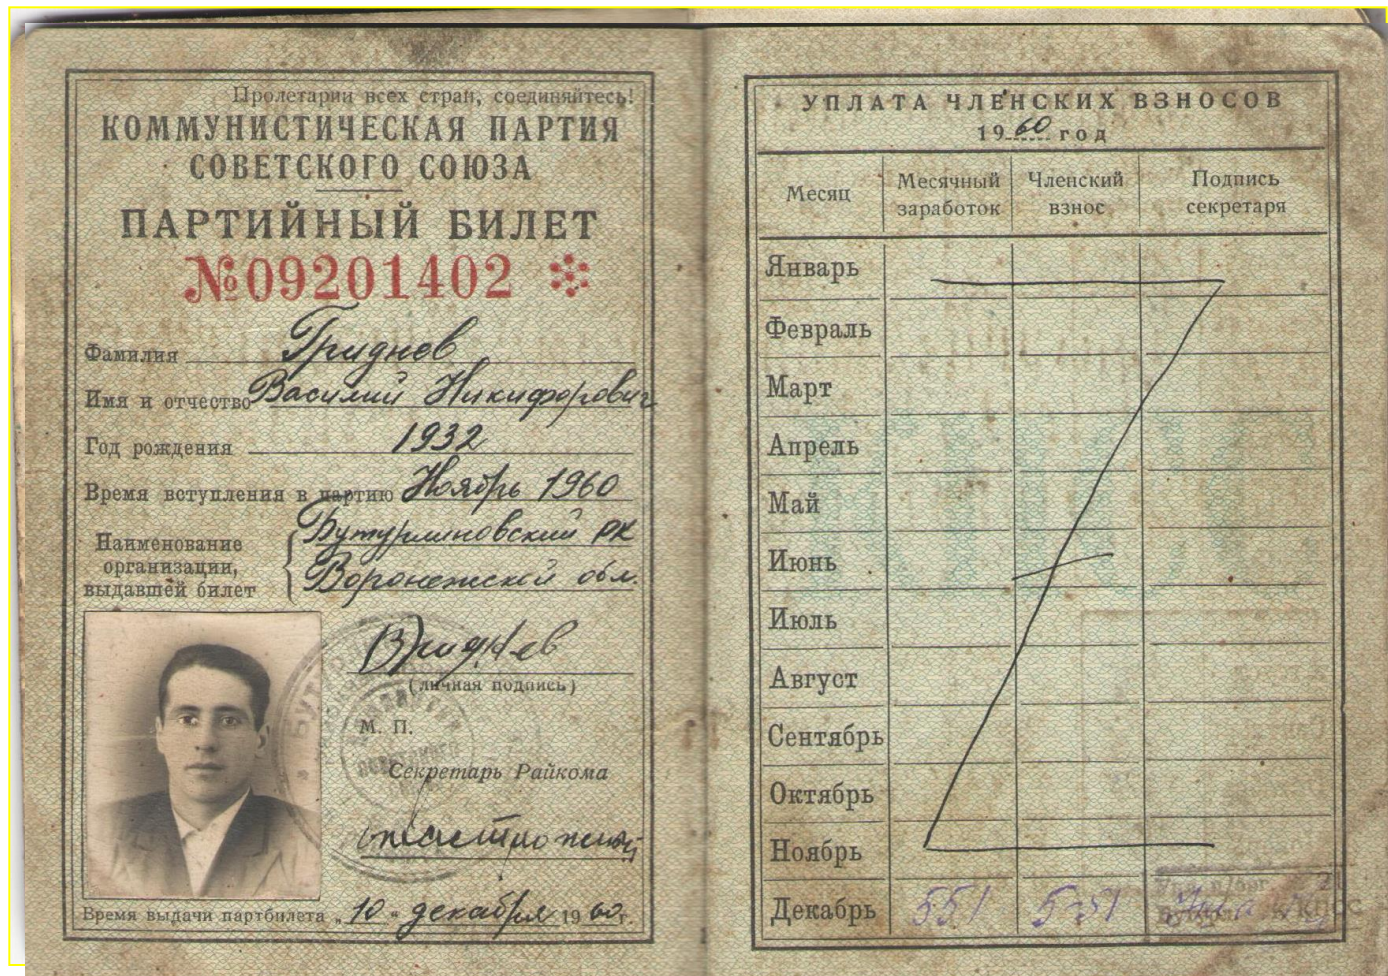 Пролетарии всех стран, соединяйтесь!
КОММУНИСТИЧЕСКАЯ ПАРТИЯ
СОВЕТСКОГО СОЮЗА
ПАРТИЙНЫЙ БИЛЕТ
№09201402
Фамилия Гриднев
Имя и отчество Василий Никифорович
Год рождения 1932
Время вступления в партию Ноябрь 1960
Наименование
организации,
выдавшей билет
Бутурлиновский РК
Воронежской обл.
(личная подпись)
М. П.
Секретарь Райкома
Время выдачи партбилета „10" декабря 1960г.
УПЛАТА ЧЛЕНСКИХ ВЗНОСОВ
1960 год
Месяц
Месячный заработок
Членский взнос
Подпись секретаря
Январь
Февраль
Март
Апрель
Май
Июнь
Июль
Август
Сентябрь
Октябрь
Ноябрь
Декабрь 551 5-51